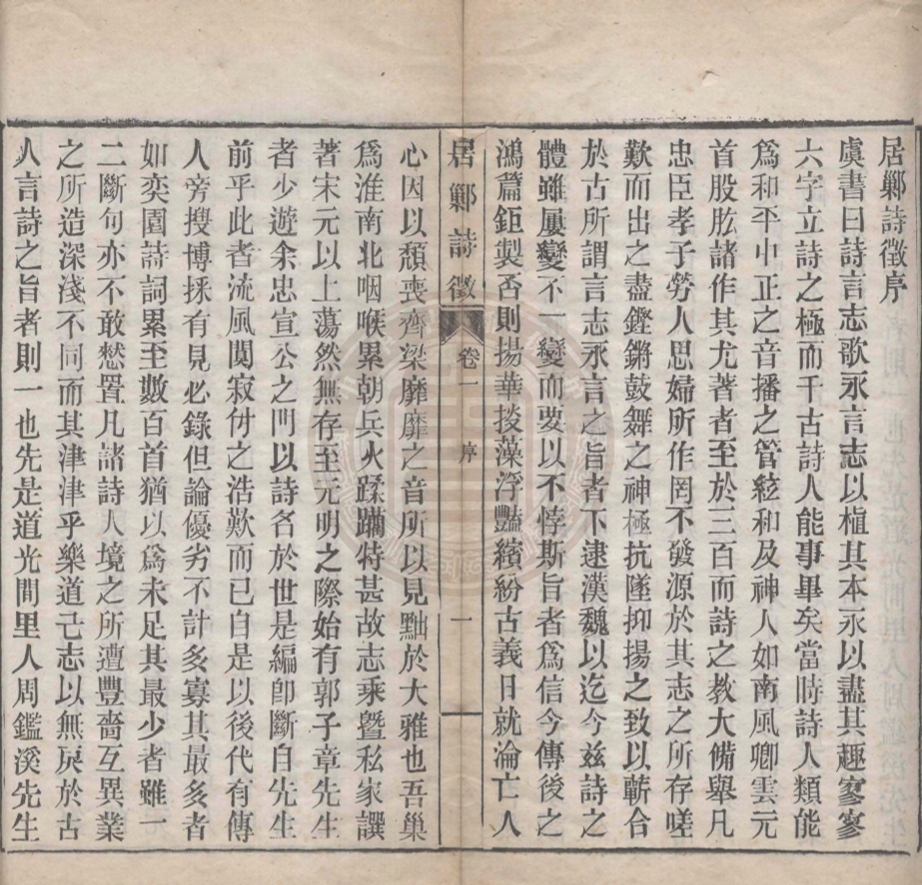 居鄛詩徵序
虞書曰詩言志歌永言志以植其本永以盡其趣寥寥
六字立詩之極而千古詩人能事畢矣當時詩人類能
爲和平中正之音播之管絃和及神人如南風卿雲元
首股肱諸作其尤著者至於三百而詩之教大備舉凡
忠臣孝子勞人思婦所作罔不發源於其志之所存嗟
歎而出之盡鏗鏘鼓舞之神極抗墜抑揚之致以蘄合
於古所謂言志永言之旨者下逮漢魏以迄今玆詩之
體雖屢變不一變而要以不悖斯旨者爲信今傳後之
鴻篇鉅製否則揚華掞藻浮豔繽紛古義日就淪亡人
居鄛詩徵
卷一
序
一
心因以頹喪齊梁靡靡之音所以見黜於大雅也吾巢
爲淮南北咽喉累朝兵火蹂躪特甚故志乘曁私家譔
著宋元以上蕩然無存至元明之際始有郭子章先生
者少遊余忠宣公之門以詩名於世是編卽斷自先生
前乎此者流風闃寂付之浩歎而已自是以後代有傳
人旁搜博採有見必錄但論優劣不計多寡其最多者
如奕園詩詞累至數百首猶以爲未足其最少者雖一
二斷句亦不敢憖置凡諸詩人境之所遭豐嗇互異業
之所造深淺不同而其津津乎樂道己志以無戾於古
人言詩之旨者則一也先是道光間里人周鑑溪先生